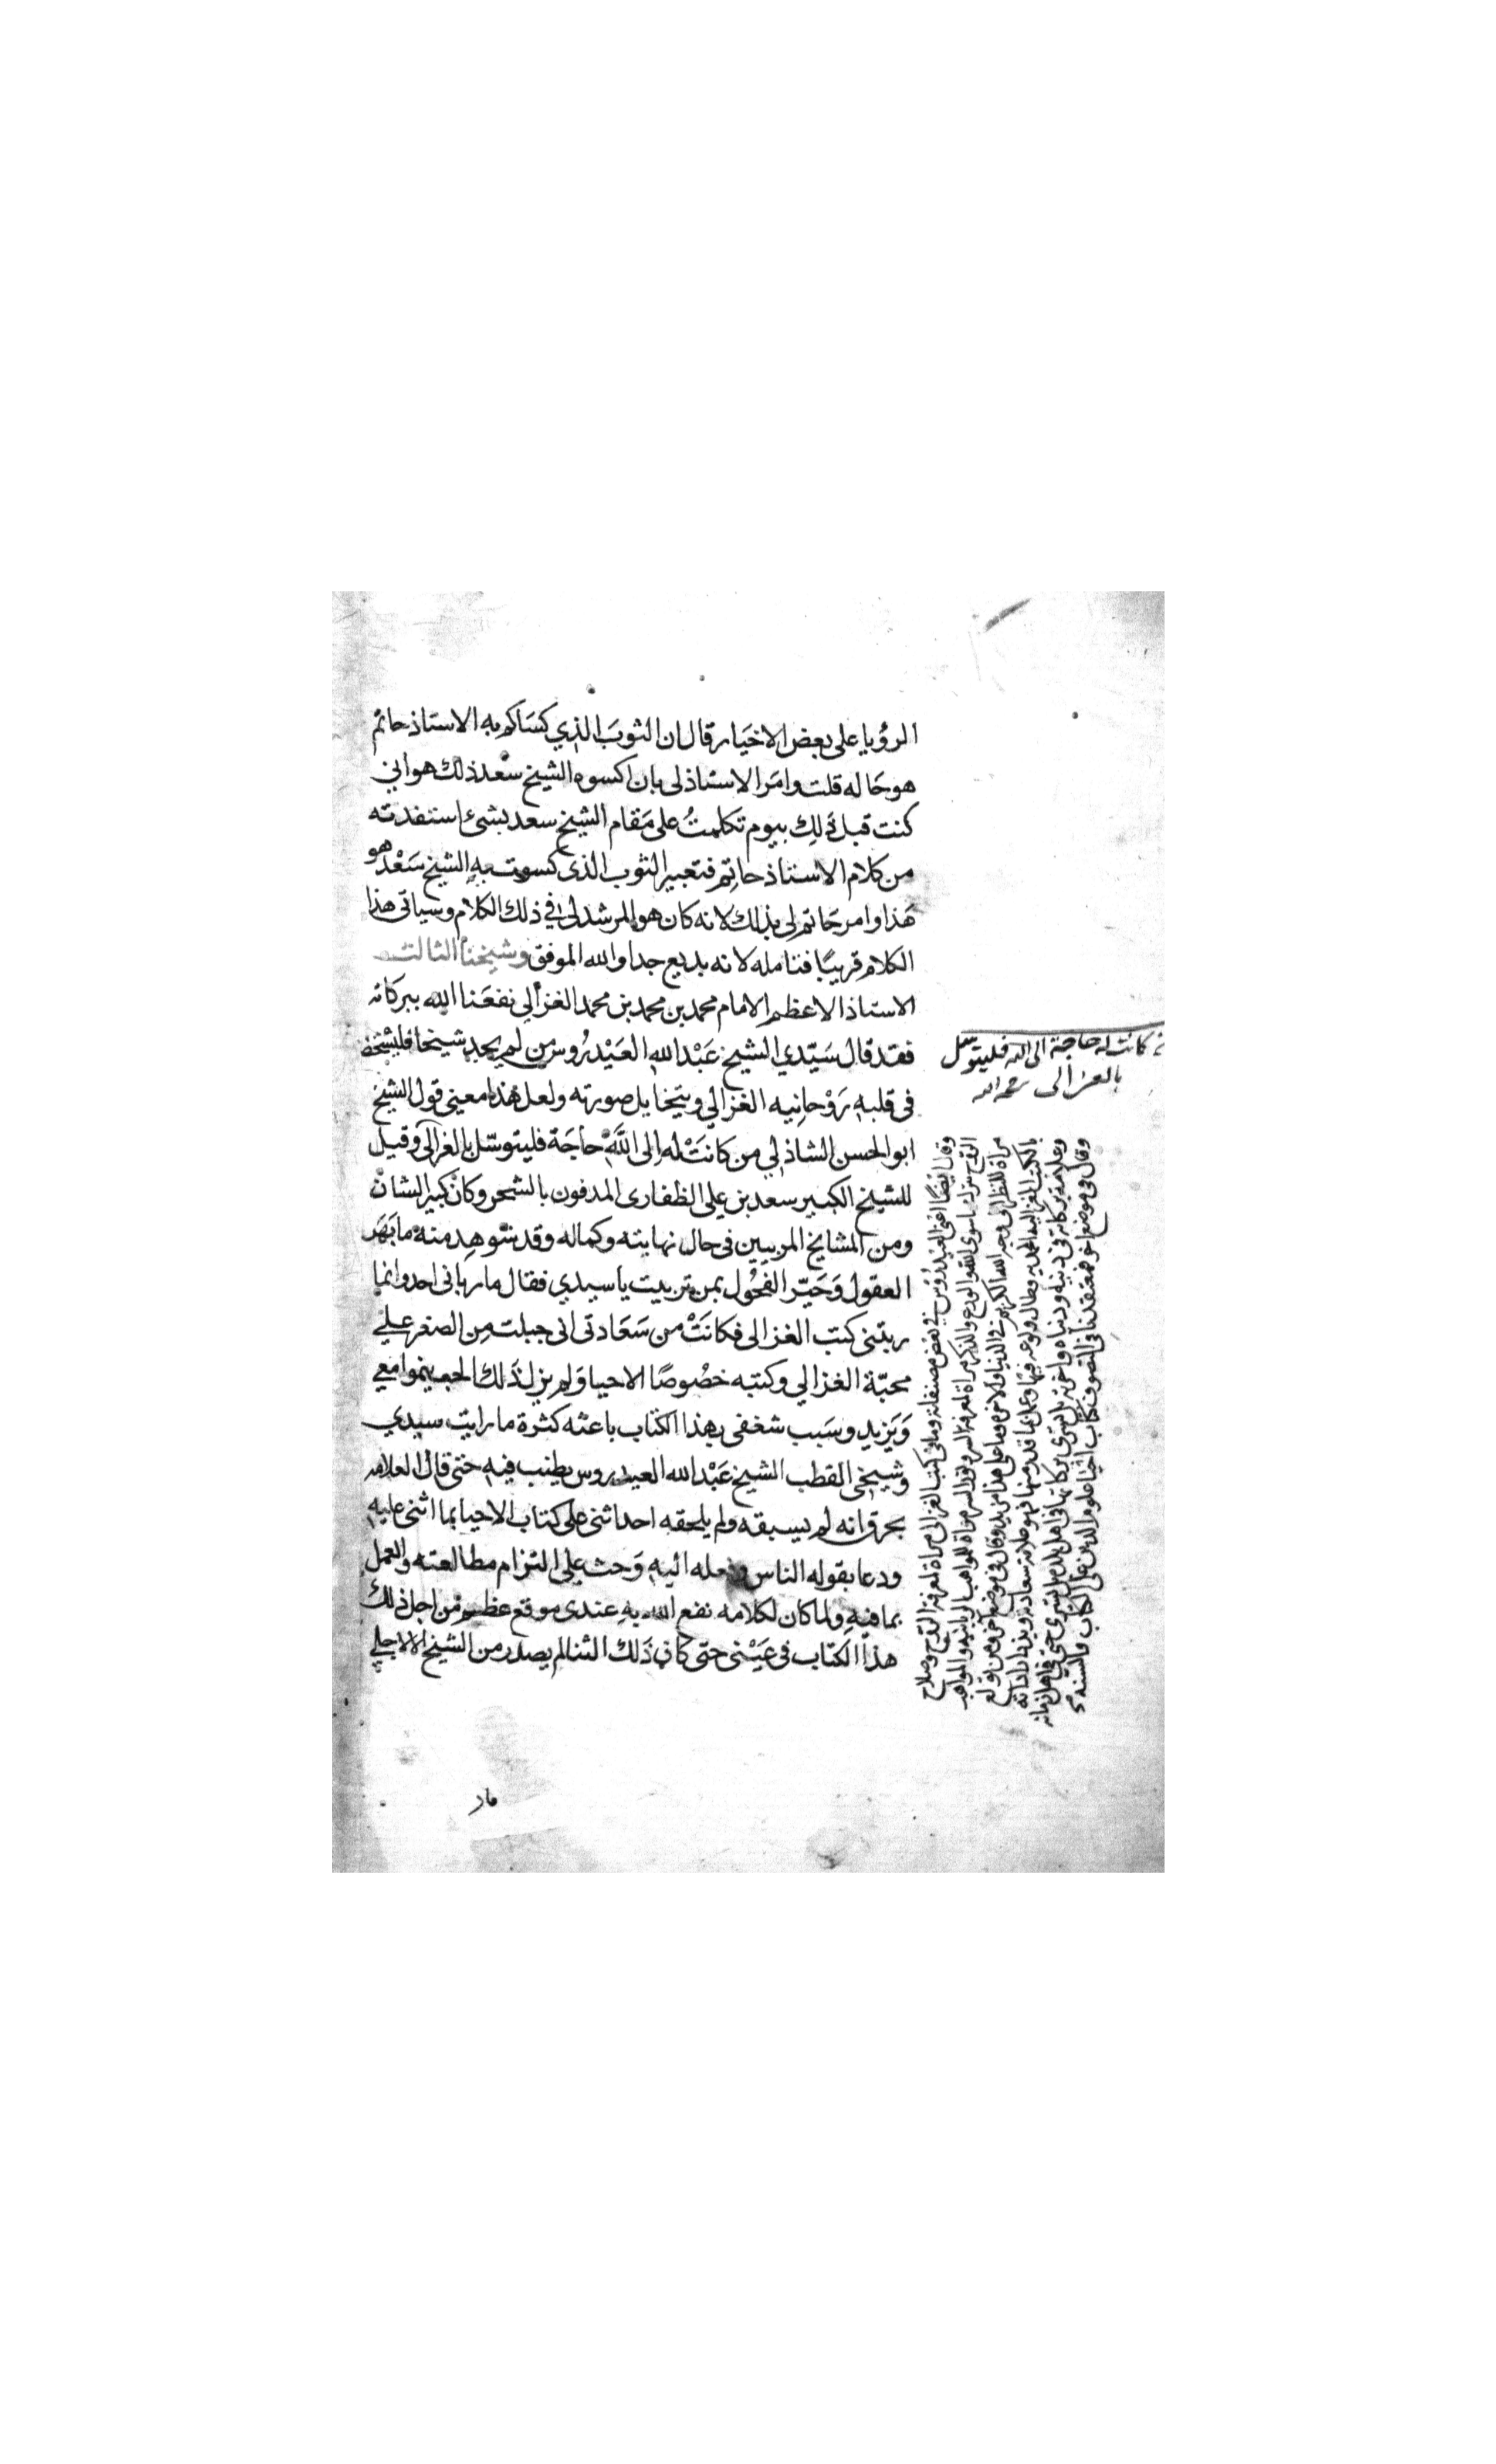 الرؤيا على بعض الاخيار قال ان الثوب الذي كساكم به الاستاذ حاتم
هو حاله قلت وامر الاستاذ لى بان اكسوه الشيخ سعد ذلك هو انى
كنت قبل ذلك بيوم تكلمت على مقام الشيخ سعد بشئ استفدته
من كلام الاستاذ حاتم فتعبير الثوب الذى كسوت به الشيخ سعد هو
هذا وامر حاتم لى بذلك لانه كان هو المرشد لى فى ذلك الكلام وسياتى هذا
الكلام قريبا فتامله لانه بديع جدا والله الموفق وشيخنا الثالث
الاستاذ الاعظم الامام محمد بن محمد بن محمد الغزالي نفعنا الله ببركاته
فقد قال سيدي الشيخ عبد الله العيدروس من لم يجد شيخا فليشخص
فى قلبه روحانيه الغزالي ويتخايل صورته ولعل هذا معنى قول الشيخ
ابو الحسن الشاذلي من كانت له الى الله حاجة فليتوسل بالغزالى وقيل
للشيخ الكبير سعد بن علي الظفارى المدفون بالشحر وكان كبير الشان
ومن المشايخ المربيين فى حال نهايته وكماله وقد شوهد منه ما بهر
العقول وحير الفحول بمن تربيت يا سيدي فقال ما ربانى احد وانما
ربتنى كتب الغزالى فكانت من سعادتى انى جبلت من الصغر على
محبة الغزالي وكتبه خصوصا الاحيا ولم يزل ذلك الحب ينموا معي
ويزيد وسبب شغفى بهذا الكتاب باعثه كثرة ما رايت سيدي
وشيخى القطب الشيخ عبد الله العيدروس يطنب فيه حتى قال العلامه
بحرق انه لم يسبقه ولم يلحقه احد اثنى على كتاب الاحيا بما اثنى عليه
ودعا بقوله الناس وفعله اليه وحث على التزام مطالعته والعمل
بما فيه ولما كان لكلامه نفع الله به عندى موقع عظيم من اجل ذلك
هذا الكتاب فى عينى حتى كان ذلك الثنا لم يصدر من الشيخ الا لاجلي
كانت له حاجة الى الله فليتوسل
بالغزالى رحمه الله
وقال ايضا اعنى العيدروس في بعض مصنفاته وما فى كتب الغزالى مراة لمعرفة الروح وصلاح
الروح بترك ما سوى الله والورع والذكر مراة لمعرفة السر ونور السر مراة للمواهب الربانيه والمواهب
مراة للنظر الى وجه الله الكريم فى الدنيا والاخره وما على هذا مزيد وقال فى موضع اخر ومن تولع
بالكتب الغزاليه المحمديه وطال ولوعه فيها وعمل بما قدر منها فهو علامة سعادته
وقال فى موضع اخر معتقدنا فى التصوف كتاب احيا علوم الدين على الكتاب والسنة